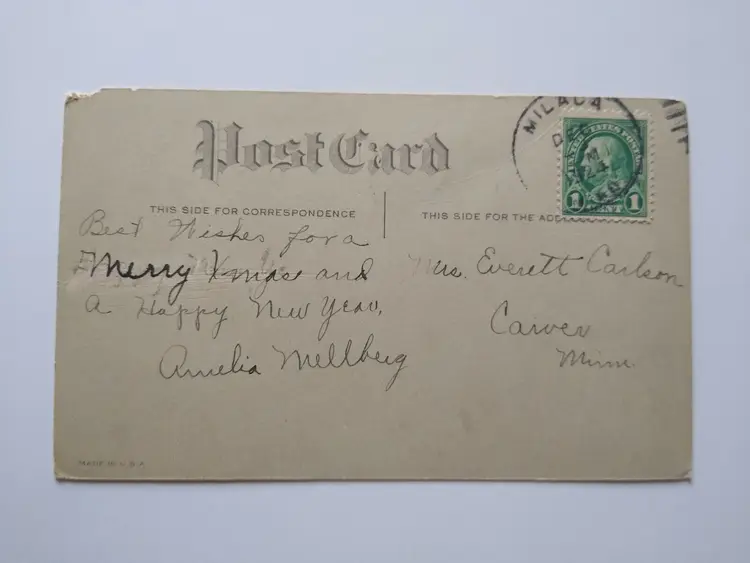 Post Card
THIS SIDE FOR CORRESPONDENCE
THIS SIDE FOR THE
MILACA
DEC
M
24
UNITED STATES POSTAGE
1 1
Best Wishes for a
Merry Xmas and
a Happy New Year,
Amelia Mellberg
Mrs. Everett Carlson
Carver
Minn.
MADE IN U.S.A.